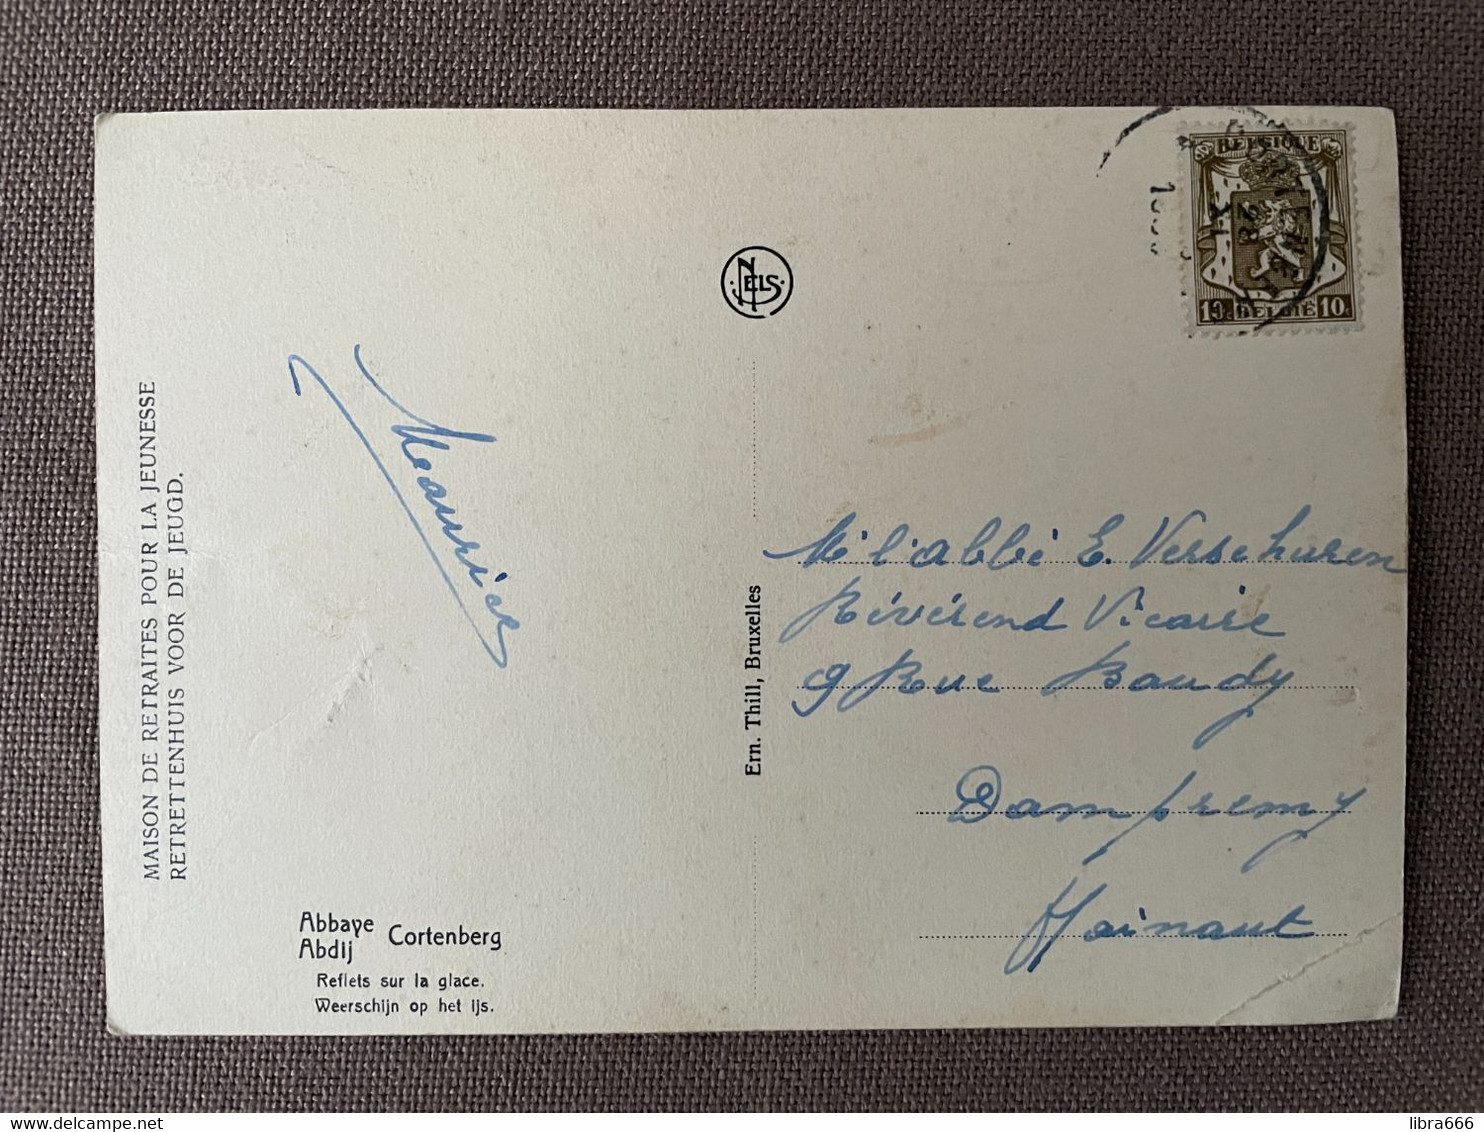 MAISON DE RETRAITES POUR LA JEUNESSE
RETRETTENHUIS VOOR DE JEUGD.
Maurice
Abbaye
Abdij
Cortenberg
Reflets sur la glace.
Weerschijn op het ijs.
NELS
Ern. Thill, Bruxelles
BELGIQUE
10c BELGIE 10c
M. l'abbé E. Verschuren
Révérend Vicaire
9 Rue Baudy
Dampremy
Hainaut
libra666
delcampe.net